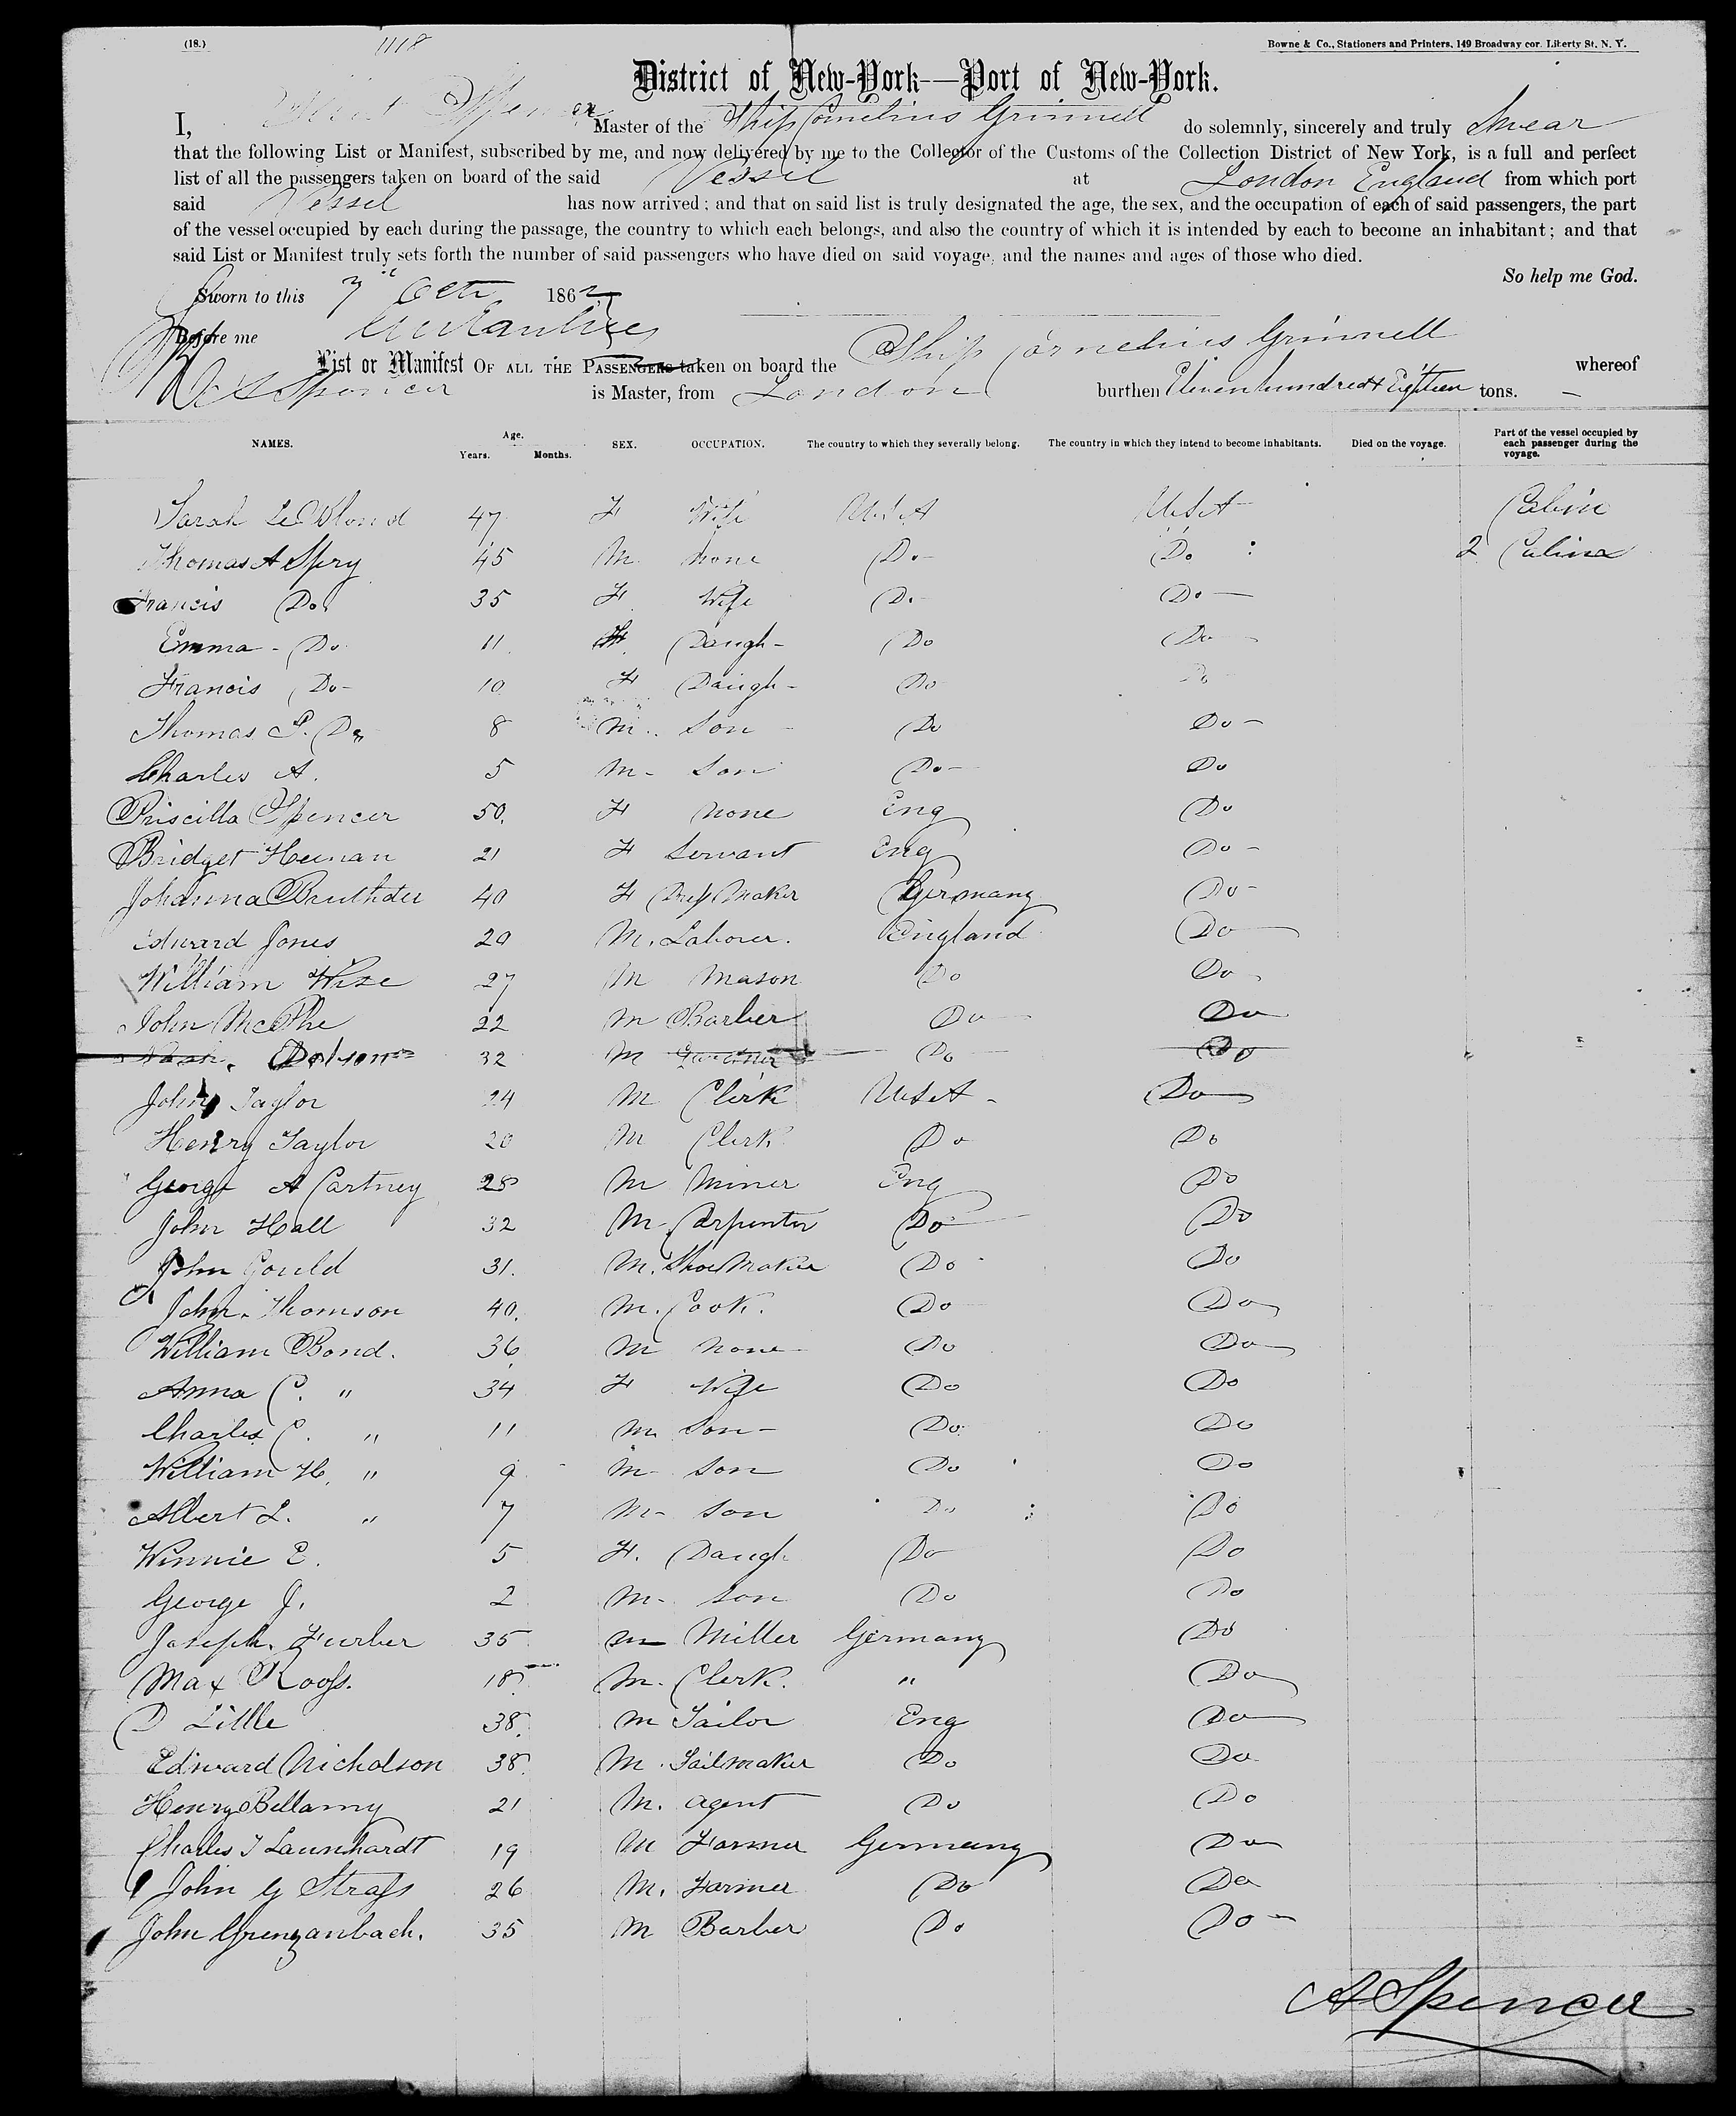 (18.) 1118 Bowne & Co., Stationers and Printers, 149 Broadway cor. Liberty St. N. Y.
District of New-York—Port of New-York.
I, Spencer Master of the Ship Cornelius Grinnell do solemnly, sincerely and truly Swear
that the following List or Manifest, subscribed by me, and now delivered by me to the Collector of the Customs of the Collection District of New York, is a full and perfect
list of all the passengers taken on board of the said Vessel at London England from which port
said Vessel has now arrived; and that on said list is truly designated the age, the sex, and the occupation of each of said passengers, the part
of the vessel occupied by each during the passage, the country to which each belongs, and also the country of which it is intended by each to become an inhabitant; and that
said List or Manifest truly sets forth the number of said passengers who have died on said voyage, and the names and ages of those who died.
So help me God.
Sworn to this 7th Octr 1862
Before me
List or Manifest OF ALL THE PASSENGERS taken on board the Ship Cornelius Grinnell whereof
A Spencer is Master, from London burthen Eleven hundred & Eighteen tons. —
NAMES. Age. Years. Months. SEX. OCCUPATION. The country to which they severally belong. The country in which they intend to become inhabitants. Died on the voyage. Part of the vessel occupied by each passenger during the voyage.
Sarah LeBlond 47 F Wife U.S.A U.S.A Cabin
Thomas A Spery 45 M none Do Do 2 Cabin
Francis Do 35 F Wife Do Do
Emma - Do 11 F Daugh- Do Do
Francis Do- 10 F Daugh- Do Do
Thomas P. Do 8 M. Son Do Do
Charles A. 5 M- Son Do Do
Priscilla Spencer 50. F none Eng Do
Bridget Heenan 21 F Servant Eng Do
Johanna 40 F Dress Maker Germany Do
Edward Jones 20 M. Laborer. England Do
William Wise 27 M Mason Do Do
John McPhe 22 M Barber Do Do
Dobson 32 M Gardner Do Do
John Taylor 24 M Clerk U.S.A - Do
Henry Taylor 20 M Clerk Do Do
George A Cartney 28 M Miner Eng Do
John Hall 32 M Carpenter Do Do
John Gould 31. M. Shoe Maker Do Do
John Thomson 40. M. Cook. Do Do
William Bond. 36 M none Do Do
Anna C. " 34 F Wife Do Do
Charles C. " 11 M Son- Do Do
William H. " 9 M- Son Do Do
Albert L. " 7 M- Son Do Do
Winnie E. 5 F. Daugh Do Do
George J. 2 M- Son Do Do
Joseph Furber 35 M Miller Germany Do
Max Rooss. 18 M. Clerk. " Do
D Little 38. M Tailor Eng Do
Edward Nicholson 38. M. Sailmaker Do Do
Henry Bellamy 21 M. agent Do Do
Charles T Launhardt 19 M Farmer Germany Do
John G Strass 26 M. Farmer Do Do
John Grenzanbach. 35 M Barber Do Do
A Spencer